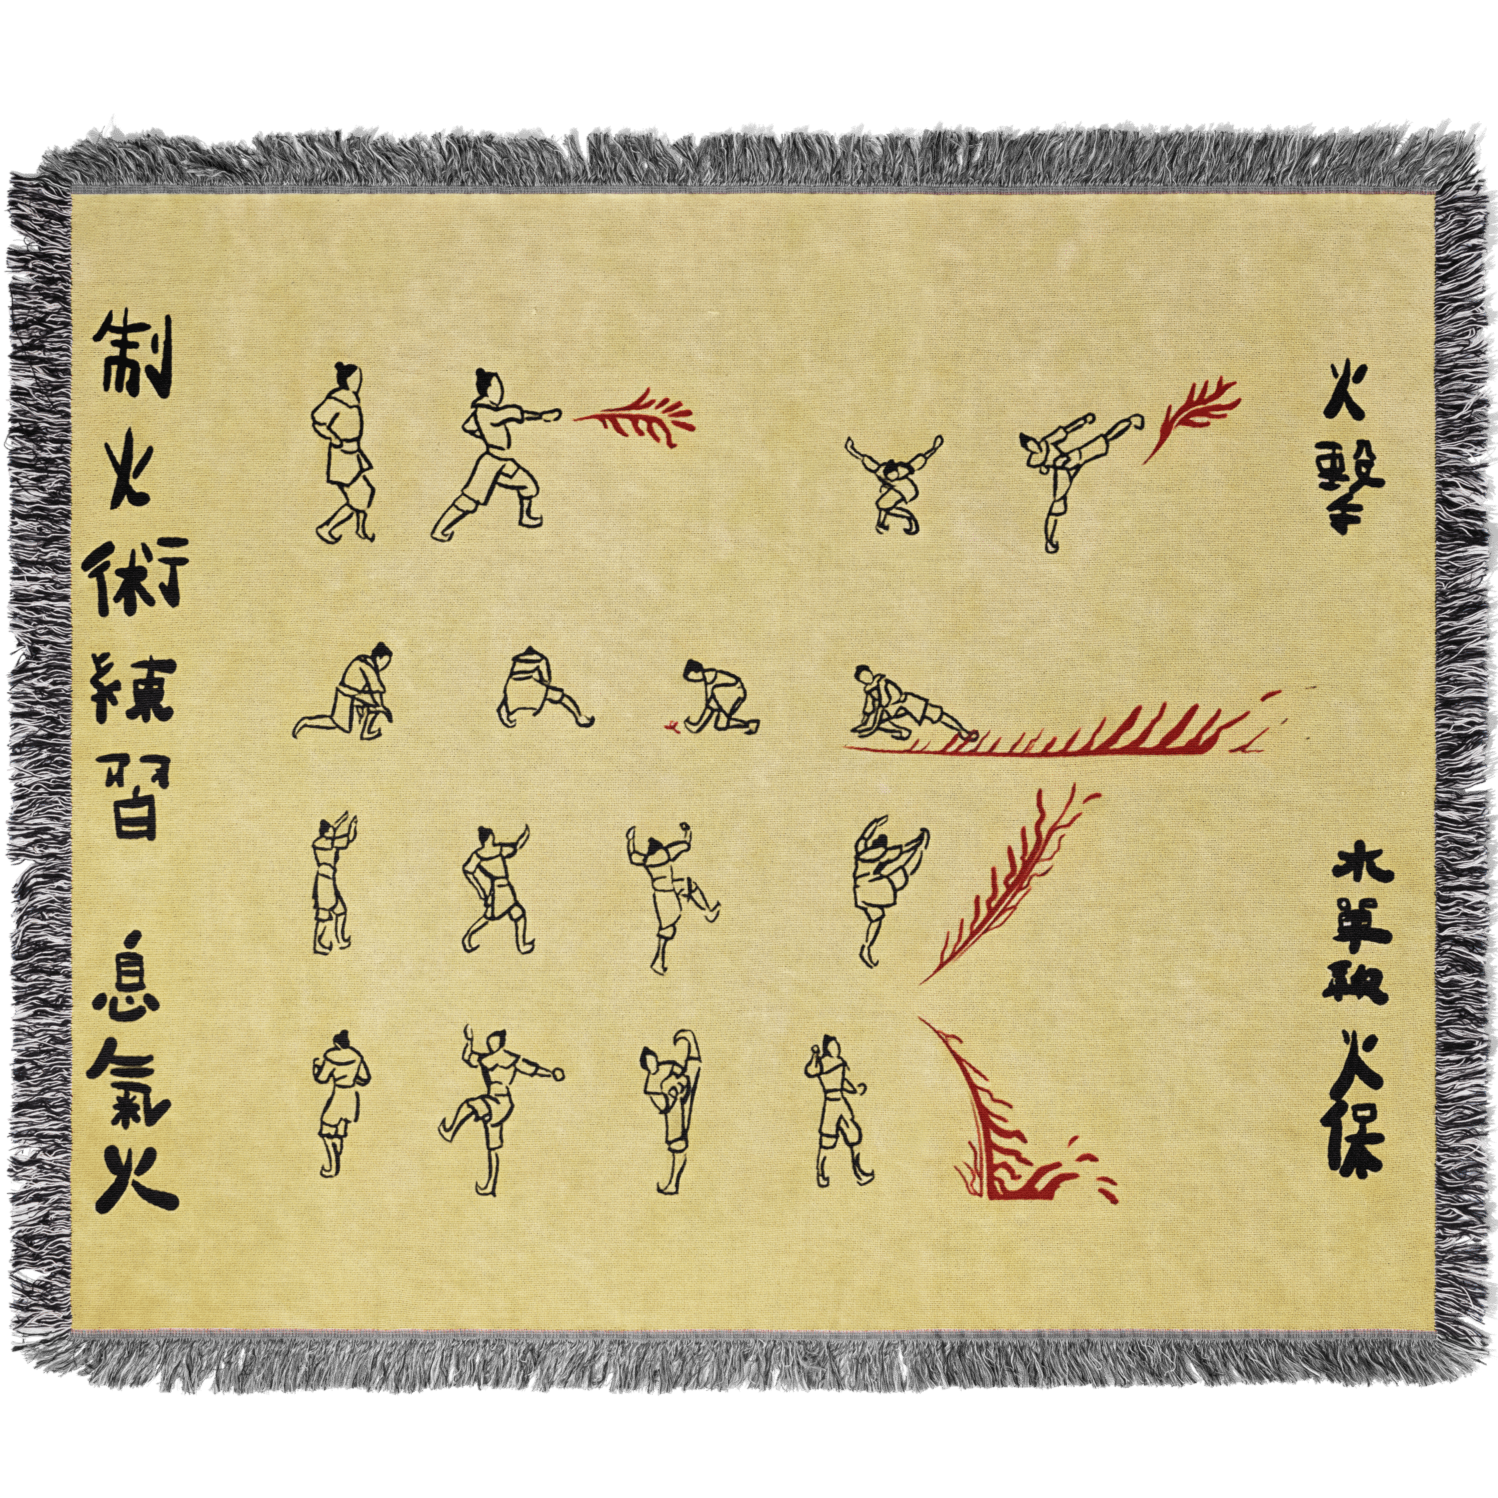 火擊
水單報火保
制火術練習 息氣火